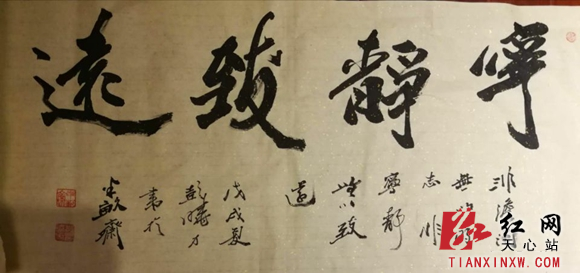 寧靜致遠
非澹
無
志非
寧靜
無以致
遠
戊戌夏
書於
半畝齋
红网
天心站
TIANXINXW.COM